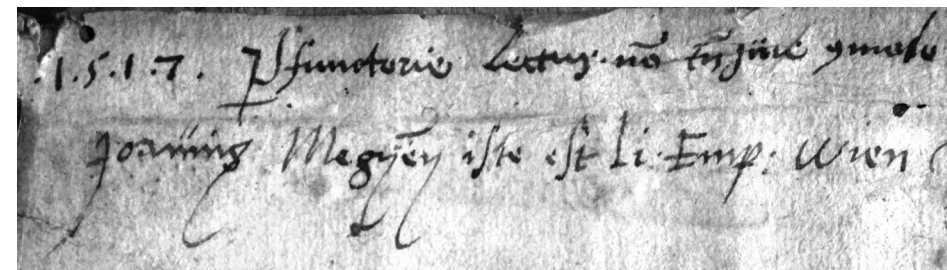 .1.5.1.7. P̲functorie Lectus. nō tn̄ sine
Joannis Megyery iste est Li. Emp: Wien